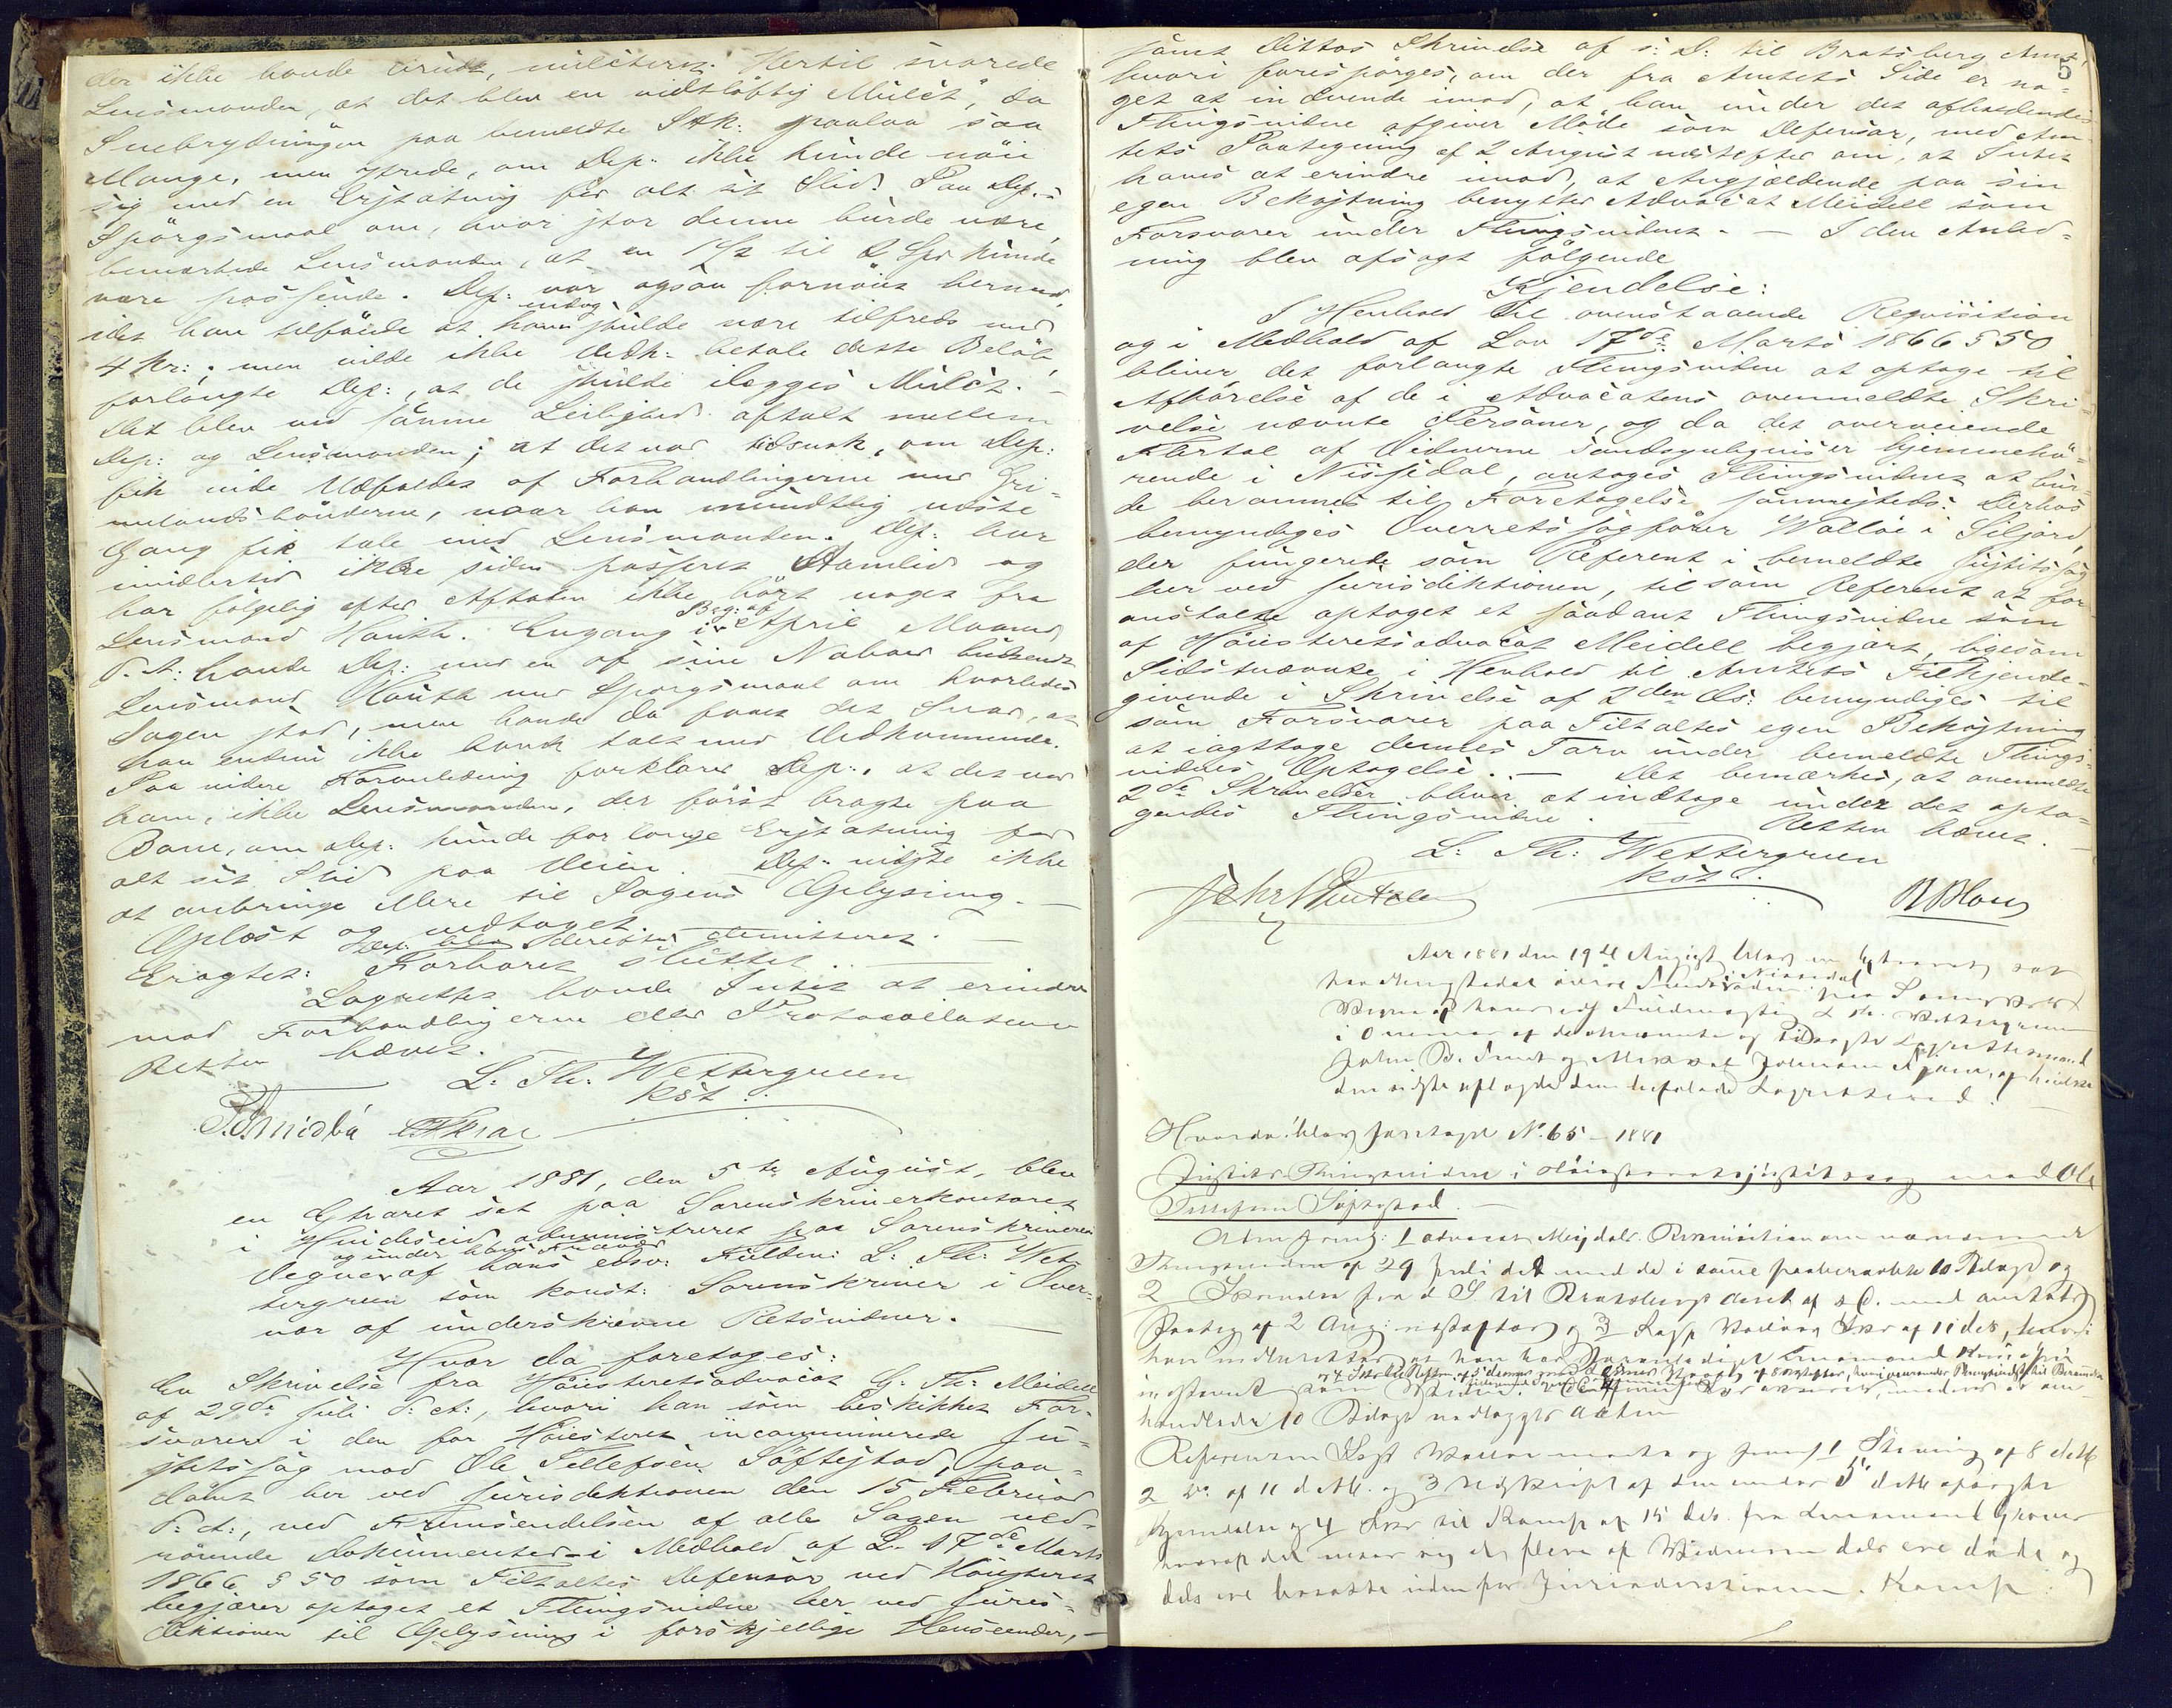 der ikke havde brudt, mulcteret. Hertil svarede
Lensmanden, at det blev en vidtløftig Mulct, da
Snebrydningen paa bemeldte Stk: paalaa saa
Mange, men ytrede, om Dep: ikke kunde nøie
sig med en Erstatning for alt sit Slid. Paa Dep:s
Spørgsmaal om, hvor stor denne burde være,
bemærkede Lensmanden, at en 1 1/2 til 2 Spd kunde
være passende. Dep: var ogsaa fornøiet hermed,
idet han tilføiede at han endog skulde være tilfreds med
4 Kr:, men vilde ikke Vedk: betale dette Beløb,
forlangte Dep:, at de skulde ilægges Mulct. —
Det blev ved samme Leilighed aftalt mellem
Dep: og Lensmanden, at det var tidsnok, om Dep:
fik vide Udfaldet af Forhandlingerne med
bønderne, naar han mundtlig næste
Gang fik tale med Lensmanden. Dep: har
imidlertid ikke siden passeret Aamlid og
har følgelig efter Aftalen ikke hørt noget fra
Lensmand Hauth. Engang i Beg: af April Maaned
d. A: havde Dep: med en af sine Naboer
Lensmand Hauth med Spørgsmaal om hvorledes
Sagen stod, men havde da faaet det Svar, at
han endnu ikke havde talt med Vedkommende.
Paa videre Foranledning forklarer Dep:, at det var
ham, ikke Lensmanden, der først bragte paa
Bane, om Dep: kunde forlange Erstatning for
alt sit Slid paa Veien. Dep: vidste ikke
at anbringe Mere til Sagens Oplysning. —
Oplæst og vedtaget.
Dep: blev derefter demitteret. —
Eragtet: Forhøret sluttet.
Lagrettet havde Intet at erindre
mod Forhandlingerne eller Protocollationen
Retten hævet.
L: Th: Wettergreen
kst:
Aar 1881, den 5te August, blev
en Extraret sat paa Sorenskriverkontoret
i Hvideseid administreret paa Sorenskriveren
Vegne og under hans Fravær af hans edsv: Fuldm: L: Th: Wet-
tergreen som konst: Sorenskriver i Over-
vær af underskrevne Retsvidner. —
Hvor da foretoges:
En Skrivelse fra Høiesteretsadvocat G. Th: Meidell
af 29de Juli d: A:, hvori han som beskikket For-
svarer i den for Høiesteret incaminerede Ju-
stitssag mod Ole Tellefsen Søftestad, paa-
dømt her ved Jurisdiktionen den 15 Februar
d: A:, ved Fremsendelsen af alle Sagen ved-
rørende Dokumenter i Medhold af L. 17de Marts
1866 § 50 som Tiltaltes Defensor ved Høiesteret
begjærer optaget et Thingsvidne her ved Juris-
diktionen til Oplysning i forskjellige Henseender,—
5
samt Dittos Skrivelse af s: D: til Bratsberg Amt,
hvori forespørges, om der fra Amtets Side er no-
get at indvende imod, at han under det afholdendes
Thingsvidne afgiver Møde som Defensor, med Am-
tets Paategning af 2 August næstefter om, at Intet
haves at erindre imod, at Angjældende paa sin
egen Bekostning benytter Advocat Meidell som
Forsvarer under Thingsvidnet. — I den Anled-
ning blev afsagt følgende
Kjendelse:
I Henhold til ovenstaaende Requisition
og i Medhold af Lov 17de Marts 1866 § 50
bliver det forlangte Thingsvidne at optage til
Afhørelse af de i Advocatens ovenmeldte Skri-
velse nævnte Personer, og da det overveiende
Flertal af Vidnerne sandsynligvis er hjemmehø-
rende i Nissedal, antages Thingsvidnet at bur-
de berammes til Foretagelse sammesteds. Derhos
bemyndiges Overretssagfører Walløe i Siljord,
der fungerede som Referent i bemeldte Justitssag
her ved Jurisdiktionen, til som Referent at for-
anstalte optaget et saadant Thingsvidne som
af Høiesteretsadvocat Meidell begjært, ligesom
Sidstnævnte i Henhold til Amtets Tilkjende-
givende i Skrivelse af 2den ds: bemyndiges til
som Forsvarer paa Tiltaltes egen Bekostning
at iagttage dennes Tarv under bemeldte Things-
vidnes Optagelse. — Det bemærkes, at ovenmeldte
2de Skrivelser bliver at indtage under det opta-
gendes Thingsvidne. Retten hævet. —
L: Th: Wettergreen
kst:
Aar 1881 den 19de August blev en Extraret sat
i Nissedal
Vegne af hans edsv Fuldmægtig L Th. Wettergreen
i Overvær af de opnævnte og Lagrettesmænd
Hvorda blev foretaget No. 65 - 1881
Justits Thingsvidne i Høiesteretsjustitssag mod Ole
Tellefsen Søftestad. —
Adm fremL: 1 Advocat Meidels Requisition om nærværende
Thingsvidne af 29 Juli d A med de i samme paaberaabte 10 Bilage og
2 Skrivelse fra d S. til Bratsbergs Amt af s D. med Amtets
Paateg af 2 Aug: næstefter og 3 Sagf Walløes Skr af 11 ds, hvori
10 Bilage vedlægges Acten
Referenten Sagf Walløe mødte og freml 1 Stevning af 8 dMts
2 Do af 11 dMts. og 3 Udskrift af den under 5 dMts afsagte
Kjendelse og 4 Skr til Komp af 15 ds. fra Lensmand
hvoraf det viser sig at flere af Vidnerne dels ere døde og
dels ere bosatte udenfor Jurisdictionen. Komp: